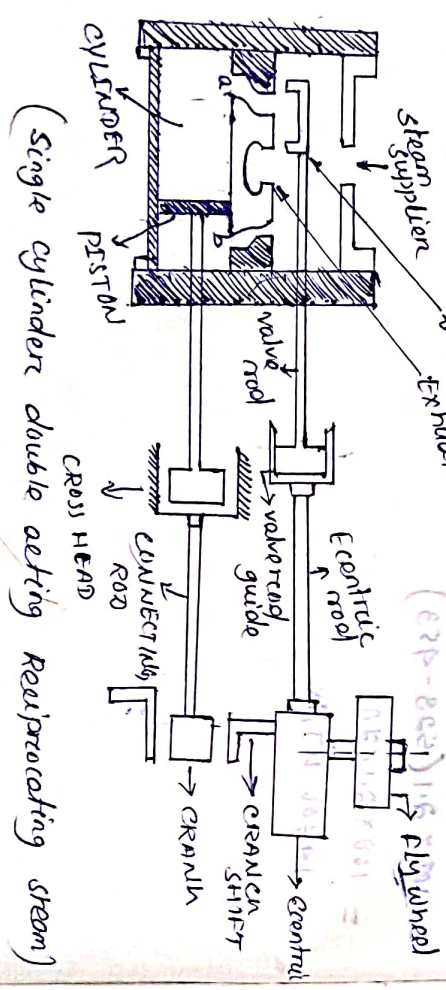 steam
supplier
Exhau
a
b
CYLINDER
PISTON
valve
rod
valve rod
guide
Eccntric
rod
CROSS HEAD
CONNECTING
ROD
CRANK
CRANCK
SHIFT
Ecentric
Fly wheel
(Single cylinder double acting Reciprocating steam)